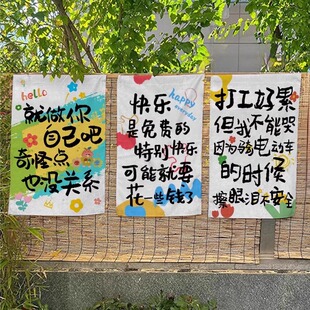 hello
就做你
自己吧
奇怪点
也没关系
快乐
happy
everyday
是免费的
特别快乐
可能就要
花一些钱了
打工好累
但我不能哭
因为骑电动车
的时候
擦眼泪不安全